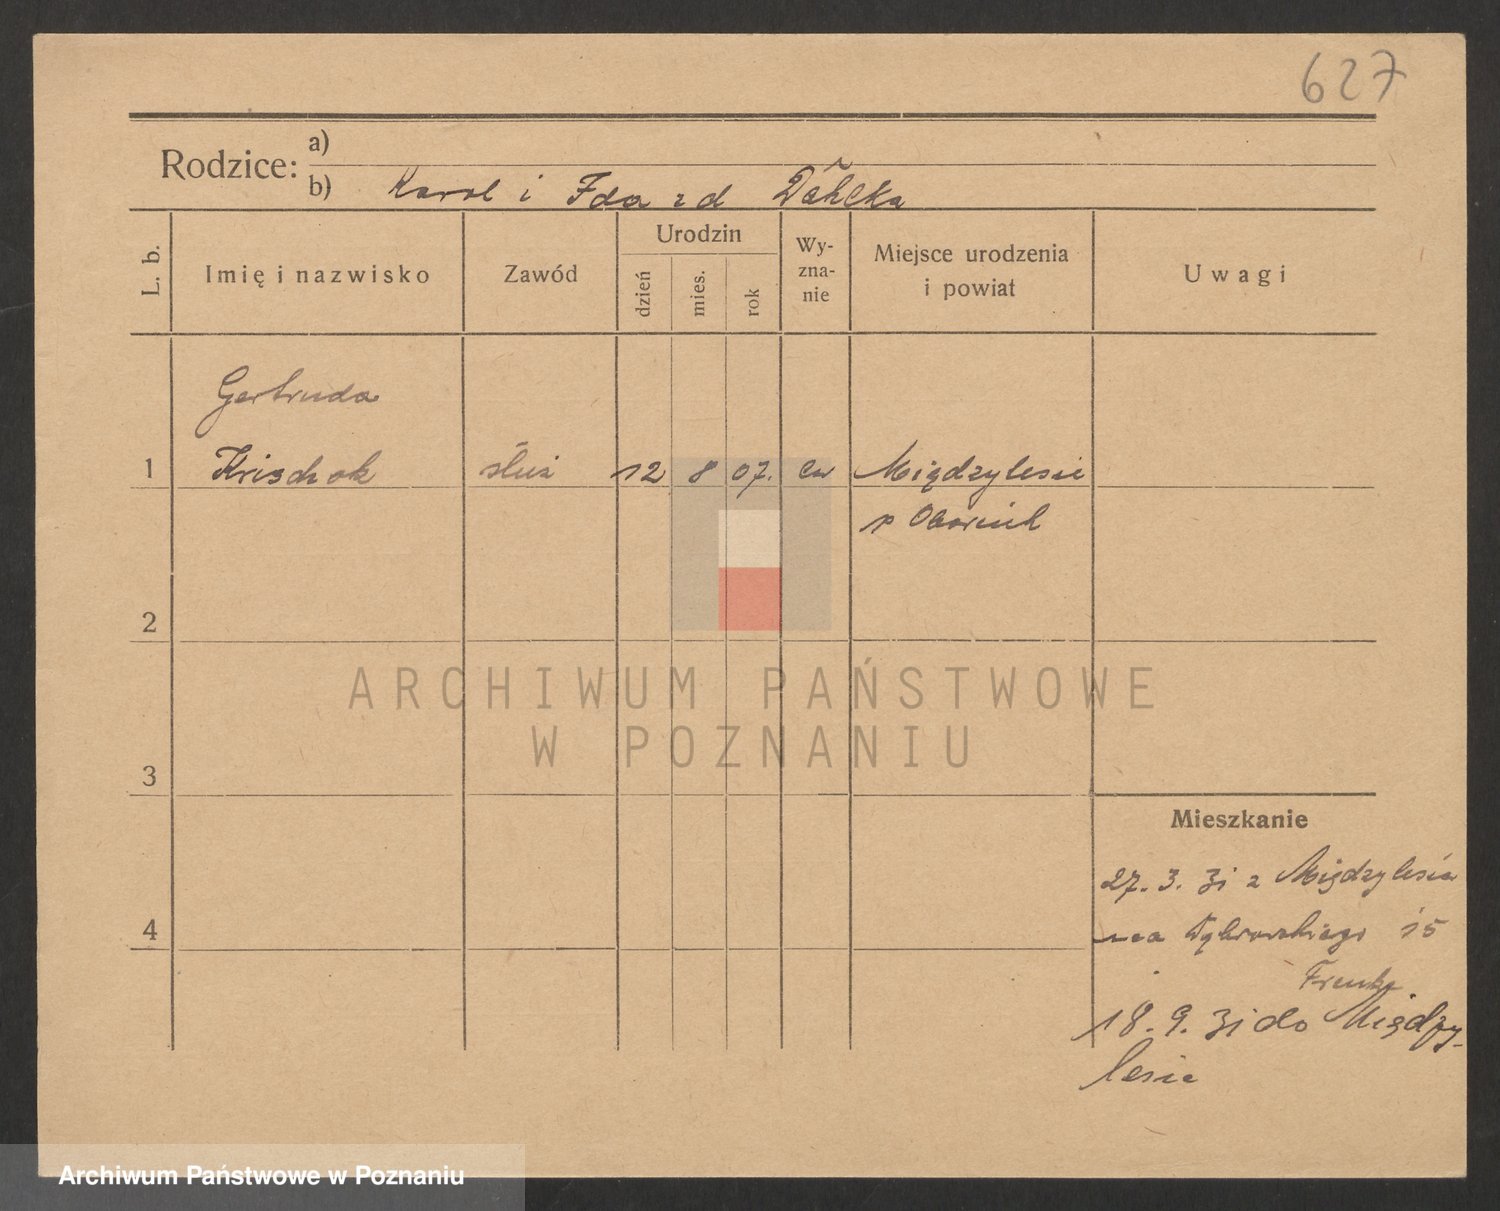 627
Rodzice:
a)
b) Karol i Ida z d Dählka
L. b.
Imię i nazwisko
Zawód
Urodzin
dzień
mies.
rok
Wy-
zna-
nie
Miejsce urodzenia
i powiat
Uwagi
Gertruda
1 Krischok służ 12 8 07. ew Międzylesie
p Obornik
2
3
4
ARCHIWUM PAŃSTWOWE
W POZNANIU
Mieszkanie
27. 3. 31 z Międzylesia
na Dąbrowskiego 15
18. 9. 31 do Między-
lesie
Archiwum Państwowe w Poznaniu